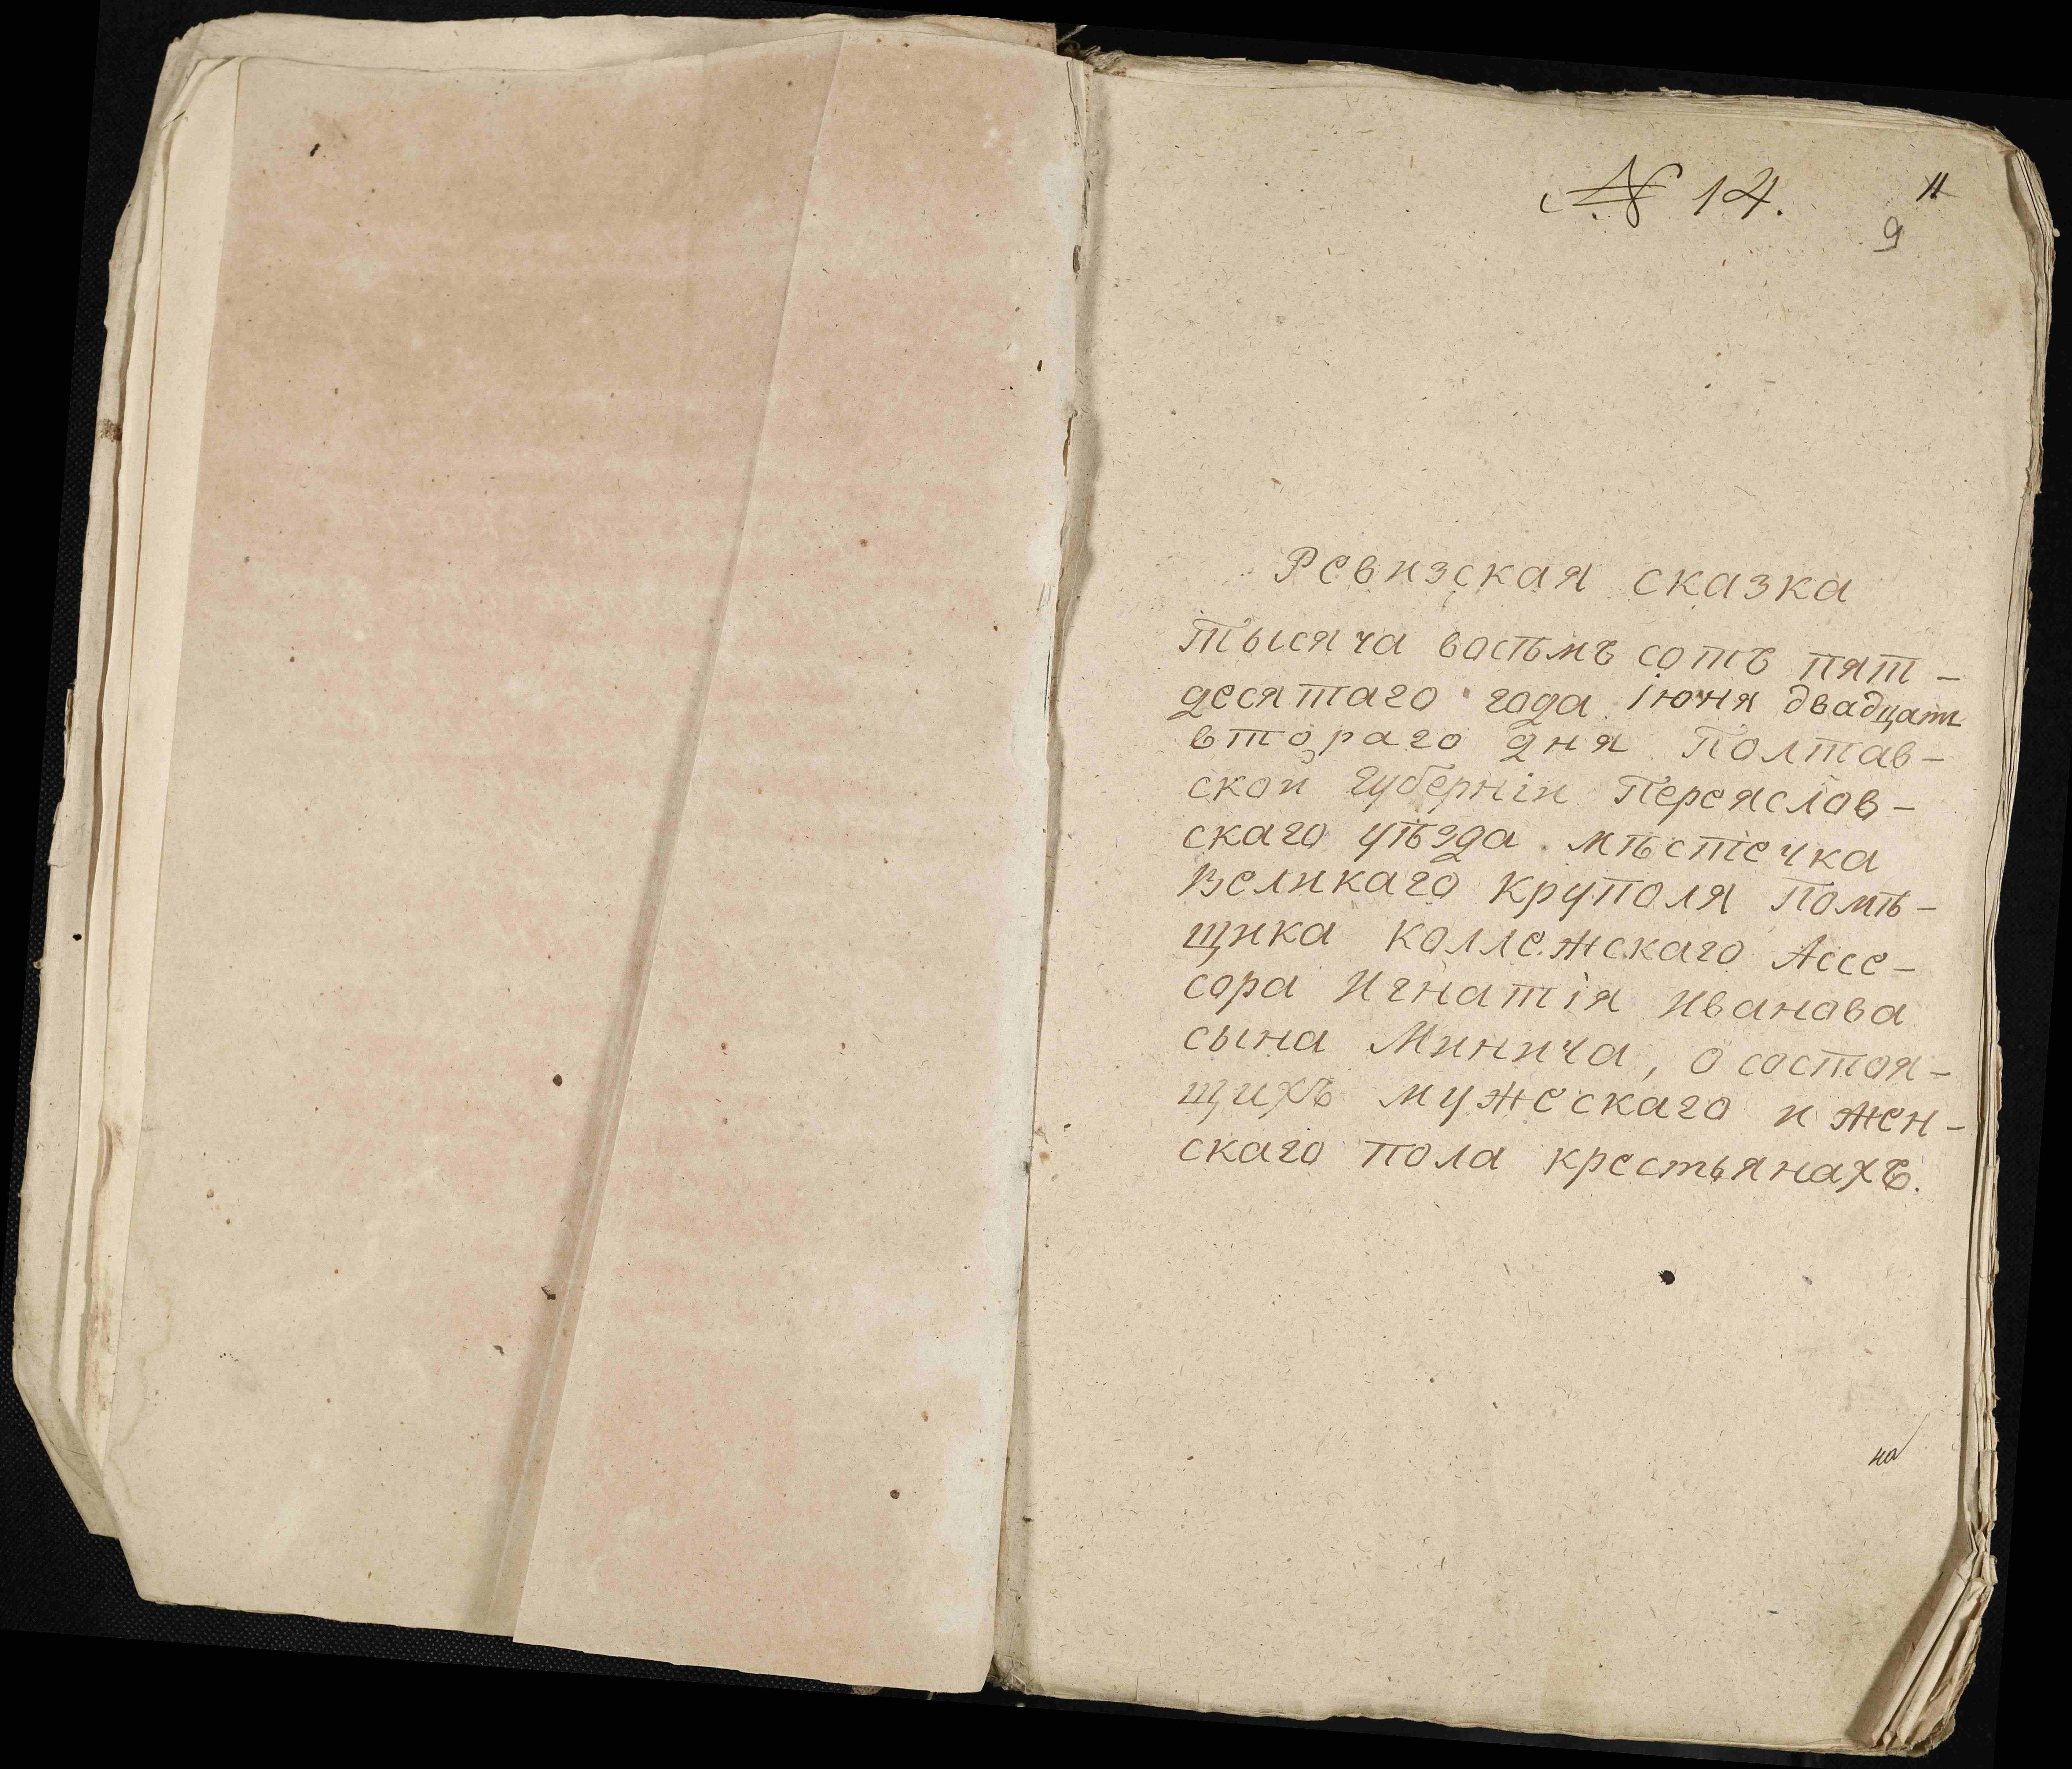 № 14.
11
9
Ревизская сказка
тысяча восѣмъ сотъ пят-
десятаго года іюня двадцати
втораго дня Полтав-
ской Губерніи Переяслов-
скаго уѣзда мѣстечка
Великаго Круполя Помѣ-
щика Коллежскаго Ассе-
сора Игнатія Иванова
сына Минича, о состоя-
щихъ мужескаго и жен-
скаго пола крестьянахъ.
на